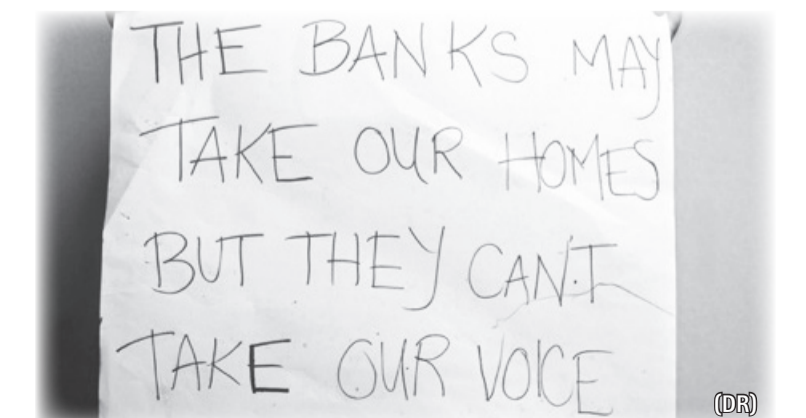 THE BANKS MAY
TAKE OUR HOMES
BUT THEY CAN'T
TAKE OUR VOICE
(DR)